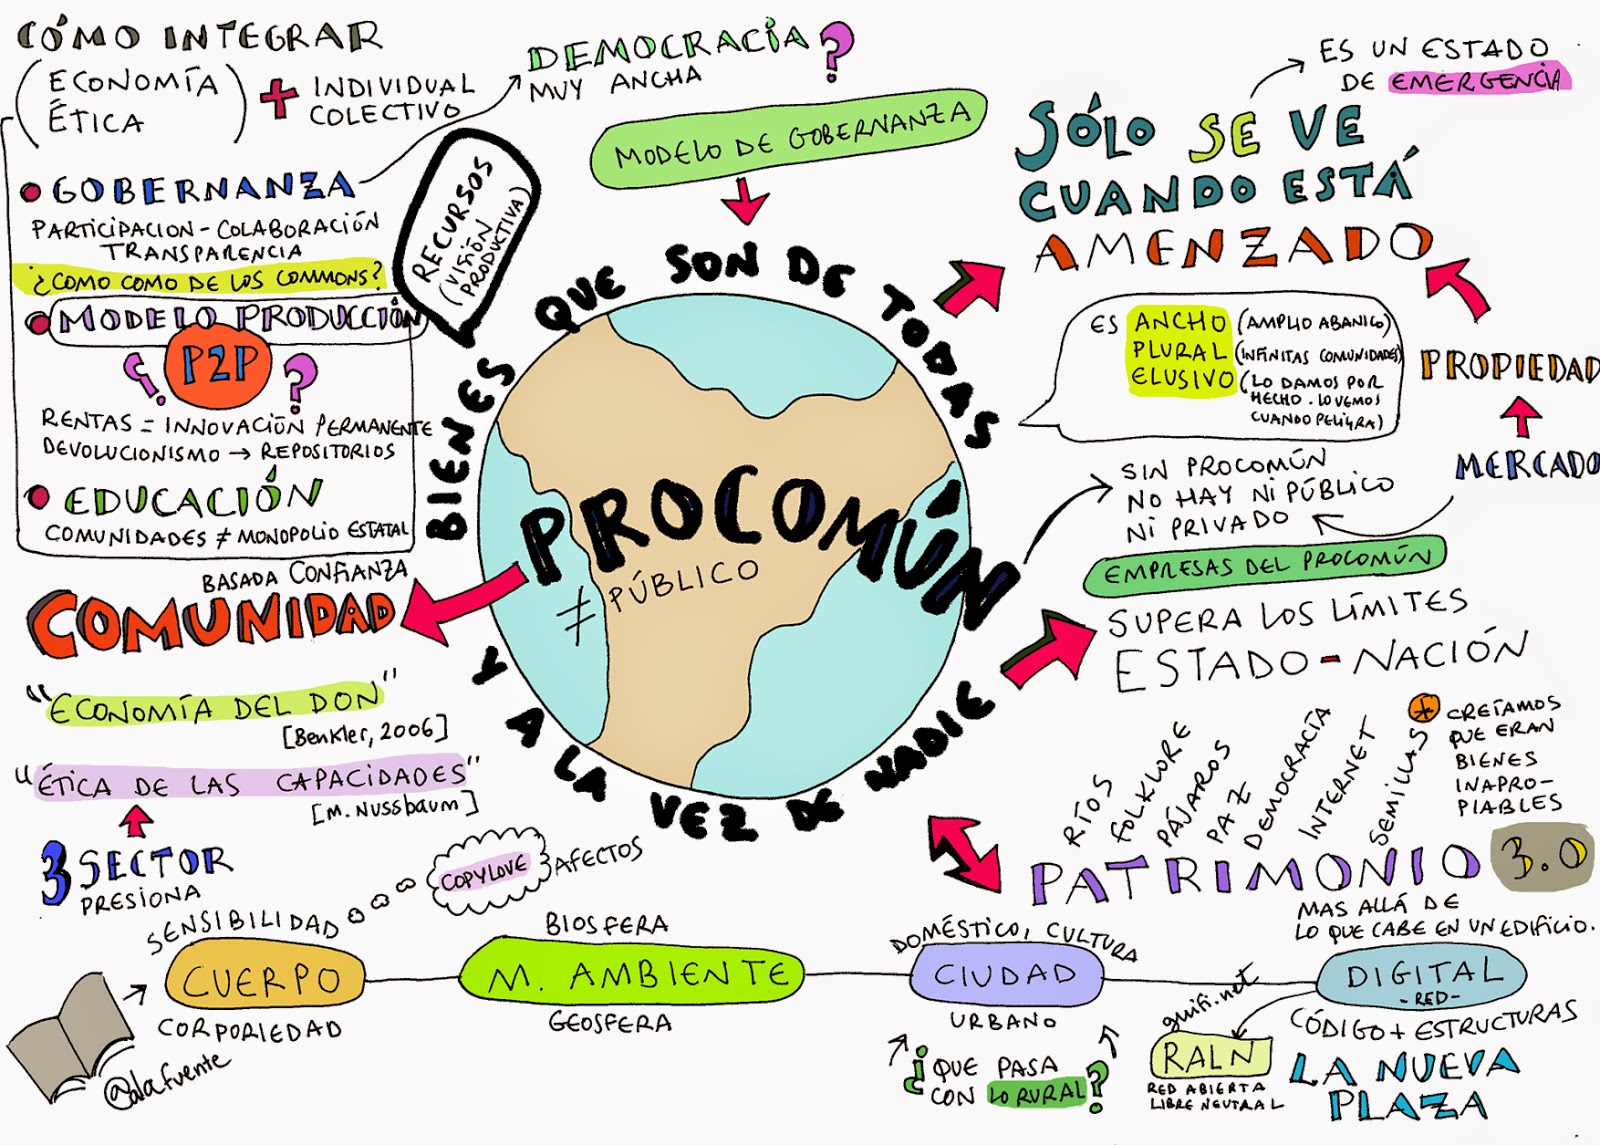 CÓMO INTEGRAR
(ECONOMÍA
ÉTICA)
+ INDIVIDUAL
COLECTIVO
DEMOCRACIA?
MUY ANCHA
MODELO DE GOBERNANZA
ES UN ESTADO
DE EMERGENCIA
SÓLO SE VE
CUANDO ESTÁ
AMENZADO
GOBERNANZA
PARTICIPACION - COLABORACIÓN
TRANSPARENCIA
¿COMO COMO DE LOS COMMONS?
MODELO PRODUCCIÓN
¿P2P?
RENTAS = INNOVACIÓN PERMANENTE
DEVOLUCIONISMO → REPOSITORIOS
EDUCACIÓN
COMUNIDADES ≠ MONOPOLIO ESTATAL
RECURSOS
(VISIÓN
PRODUCTIVA)
BIENES QUE SON DE TODAS
Y A LA VEZ DE NADIE
PROCOMÚN
≠ PÚBLICO
ES ANCHO (AMPLIO ABANICO)
PLURAL (INFINITAS COMUNIDADES)
ELUSIVO (LO DAMOS POR
HECHO. LO VEMOS
CUANDO PELIGRA)
PROPIEDAD
MERCADO
SIN PROCOMÚN
NO HAY NI PÚBLICO
NI PRIVADO
EMPRESAS DEL PROCOMÚN
SUPERA LOS LÍMITES
ESTADO-NACIÓN
BASADA CONFIANZA
COMUNIDAD
"ECONOMÍA DEL DON"
[Benkler, 2006]
"ÉTICA DE LAS CAPACIDADES"
[M. Nussbaum]
3 SECTOR
PRESIONA
RÍOS
FOLKLORE
PÁJAROS
PAZ
DEMOCRACÍA
INTERNET
SEMILLAS *
* CREÍAMOS
QUE ERAN
BIENES
INAPRO-
PIABLES
PATRIMONIO 3.0
MAS ALLÁ DE
LO QUE CABE EN UN EDIFICIO.
SENSIBILIDAD
COPYLOVE
AFECTOS
CUERPO
CORPORIEDAD
BIOSFERA
M. AMBIENTE
GEOSFERA
DOMÉSTICO, CULTURA
CIUDAD
URBANO
¿QUE PASA
CON LO RURAL?
DIGITAL
-RED-
CÓDIGO + ESTRUCTURAS
LA NUEVA
PLAZA
guifi.net
RALN
RED ABIERTA
LIBRE NEUTRAL
@alafuente